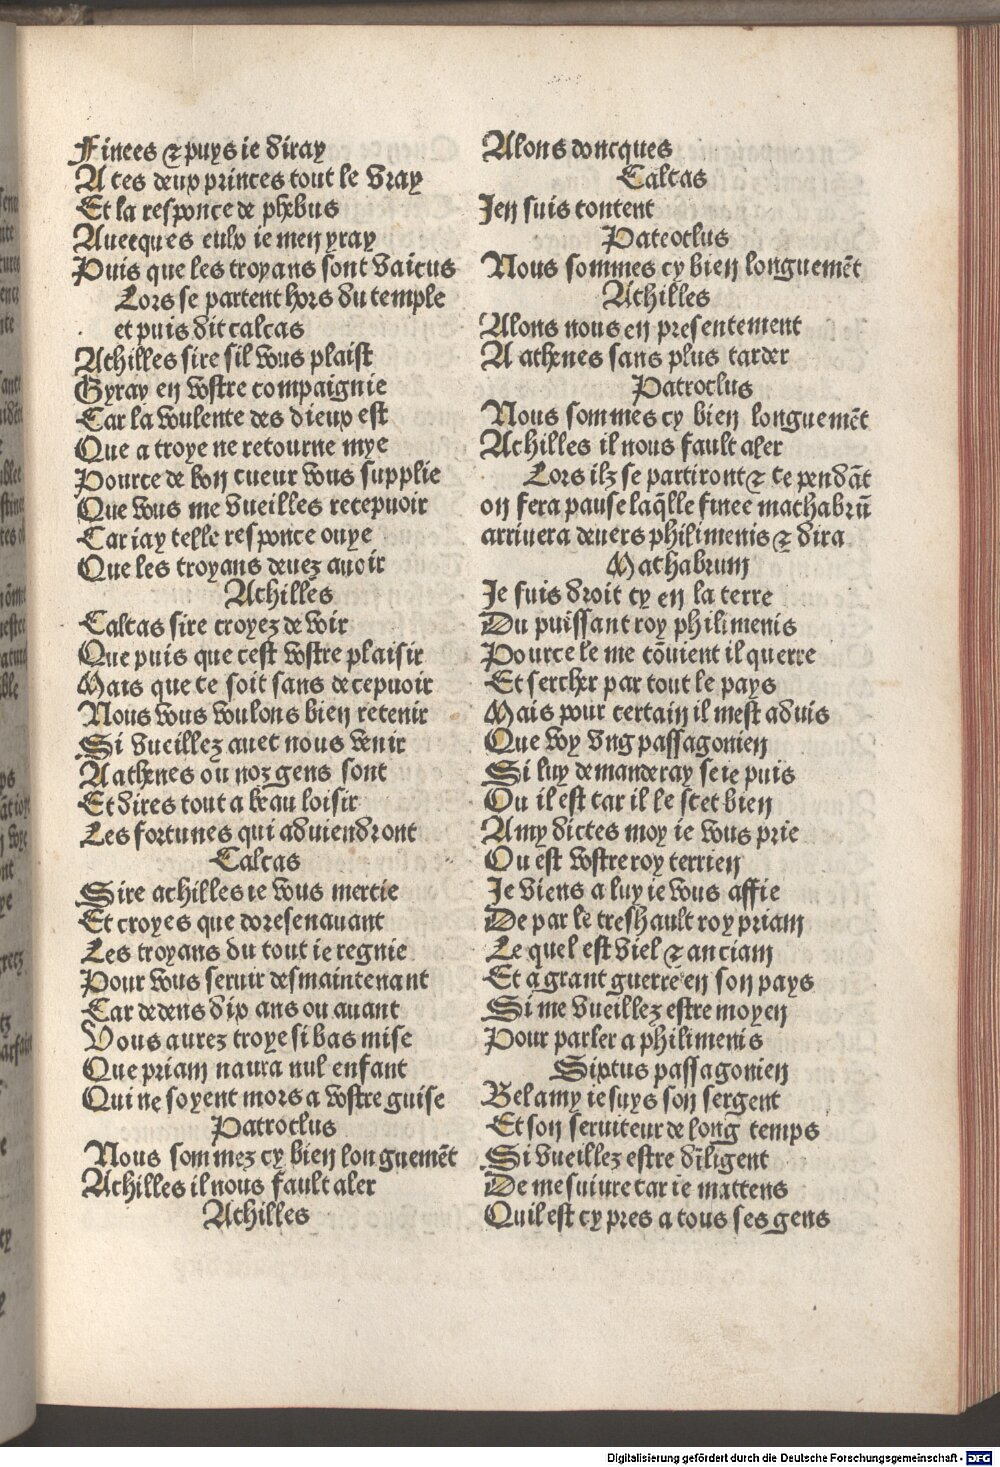 Finees ⁊ puys ie diray
A ces deux princes tout le vray
Et la responce de phebus
Auecques eulx ie men yray
Puis que les troyans sont vaĩcus
Lors se partent hors du temple
et puis dit calcas
Achilles sire sil vous plaist
Gyray en vostre compaignie
Car la voulente des dieux est
Que a troye ne retourne mye
Pource de bon cueur vous supplie
Que vous me vueilles recepuoir
Car iay telle responce ouye
Que les troyans deuez auoir
Achilles
Calcas sire croyez de voir
Que puis que cest vostre plaisir
Mais que ce soit sans decepuoir
Nous vous voulons bien retenir
Si vueillez auec nous venir
A athenes ou noz gens sont
Et dires tout a beau loisir
Les fortunes qui aduiendront
Calcas
Sire achilles ie vous mercie
Et croyes que doresenauant
Les troyans du tout ie regnie
Pour vous seruir desmaintenant
Car dedens dix ans ou auant
Vous aurez troye si bas mise
Que priam naura nul enfant
Qui ne soyent mors a vostre guise
Patroclus
Nous sommez cy bien longuemẽt
Achilles il nous fault aler
Achilles
Alons doncques
Calcas
Jen suis content
Pateoclus
Nous sommes cy bien longuemẽt
Achilles
Alons nous en presentement
A athenes sans plus tarder
Patroclus
Nous sommes cy bien longuemẽt
Achilles il nous fault aler
Lors ilz se partiront ⁊ ce pendãt
on fera pause laq̃lle finee machabrũ
arriuera deuers philimenis ⁊ dira
Machabrum
Je suis droit cy en la terre
Du puissant roy philimenis
Pource le me cõuient il querre
Et sercher par tout le pays
Mais pour certain il mest aduis
Que voy vng passagonien
Si luy demanderay se ie puis
Ou il est car il le scet bien
Amy dictes moy ie vous prie
Ou est vostre roy terrien
Je viens a luy ie vous affie
De par le treshault roy priam
Le quel est viel ⁊ anciam
Et a grant guerre en son pays
Si me vueillez estre moyen
Pour parler a philimenis
Sixtus passagonien
Bel amy ie suys son sergent
Et son seruiteur de long temps
Si vueillez estre diligent
De me suiure car ie mattens
Quil est cy pres a tous ses gens
Digitalisierung gefördert durch die Deutsche Forschungsgemeinschaft - DFG